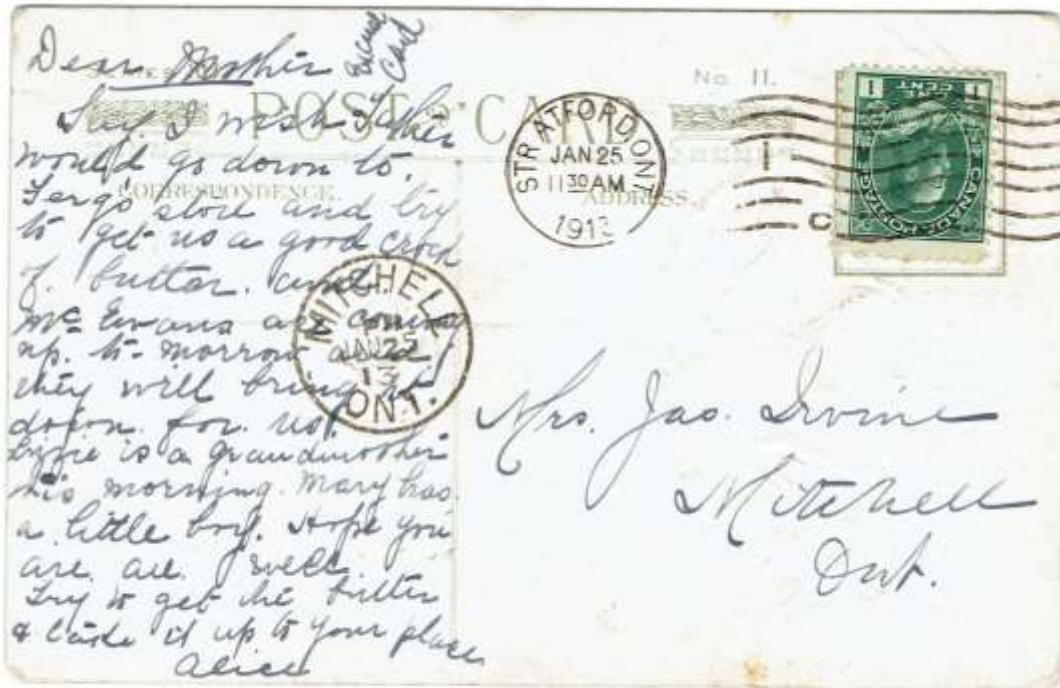 Dear Mother
Excuse
Card
Say I wish Father
would go down to.
store and try
to get us a good crock
of butter. and
Mc Ewans are coming
up. to-morrow and
they will bring it
down for us.
Lizzie is a Grandmother
this morning. Mary has
a little boy. Hope you
are all well
Try to get the butter
& take it up to your place
Alice
POST CARD
No. 11.
CORRESPONDENCE.
ADDRESS.
STRATFORD ONT
JAN 25
11 30 AM
1913
MITCHELL
PM
JAN 25
13
ONT.
1 CENT 1
CANADA POSTAGE
Mrs. Jas. Irvine
Mitchell
Ont.